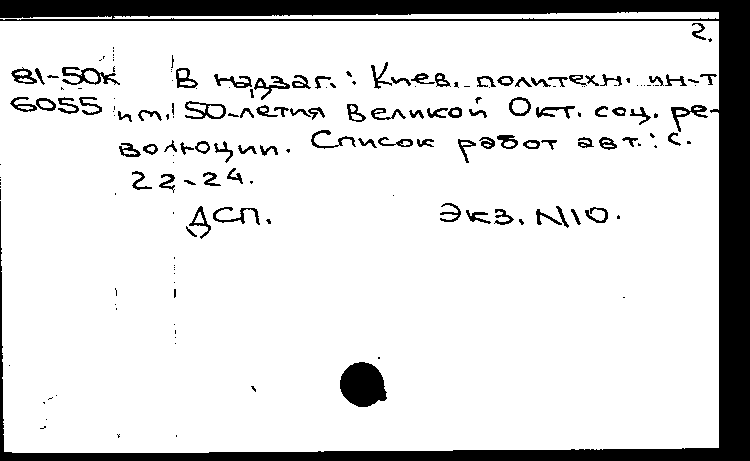 2.
81-50к В надзаг.: Киев. политехн. ин-т
6055 им. 50-летия Великой Окт. соц. ре-
волюции. Список работ авт.: с.
22-24.
ДСП. Экз. N10.